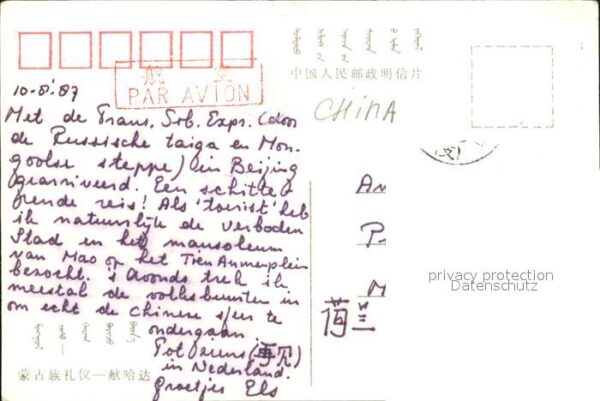 航 空
PAR AVION
中国人民邮政明信片
CHINA
10-8-'87
Met de Trans. Sib. Expr. (door
de Russische taiga en Mon-
goolse steppe) in Beijing
gearriveerd. Een schitte-
rende reis! Als 'toerist' heb
ik natuurlijk de verboden
Stad en het mausoleum
van Mao op het Tien Anmenplein
bezocht. 's Avonds trek ik
meestal de volksbuurten in
om echt de Chinese sfeer te
ondergaan.
Tot ziens (再见)
in Nederland.
Groetjes Els
蒙古族礼仪—献哈达
An
P
M
荷兰
privacy protection
Datenschutz